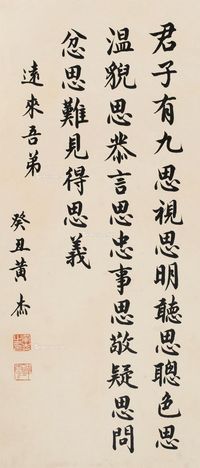 君子有九思視思明聽思聰色思
溫貌思恭言思忠事思敬疑思問
忿思難見得思義
遠來吾弟
癸丑黃杰